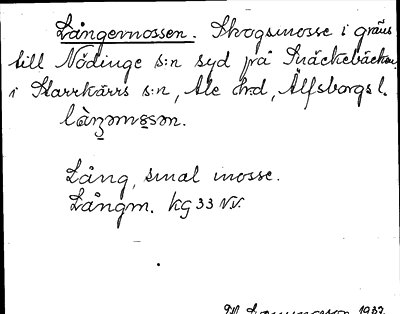 Långemossen. Skogsmosse i gräns
till Nödinge s:n syd från Snäckebäcken
i Starrkärrs s:n, Ale hrd, Älfsborgs l.
Lång, smal mosse.
Långm. kg 33 NV.
1937